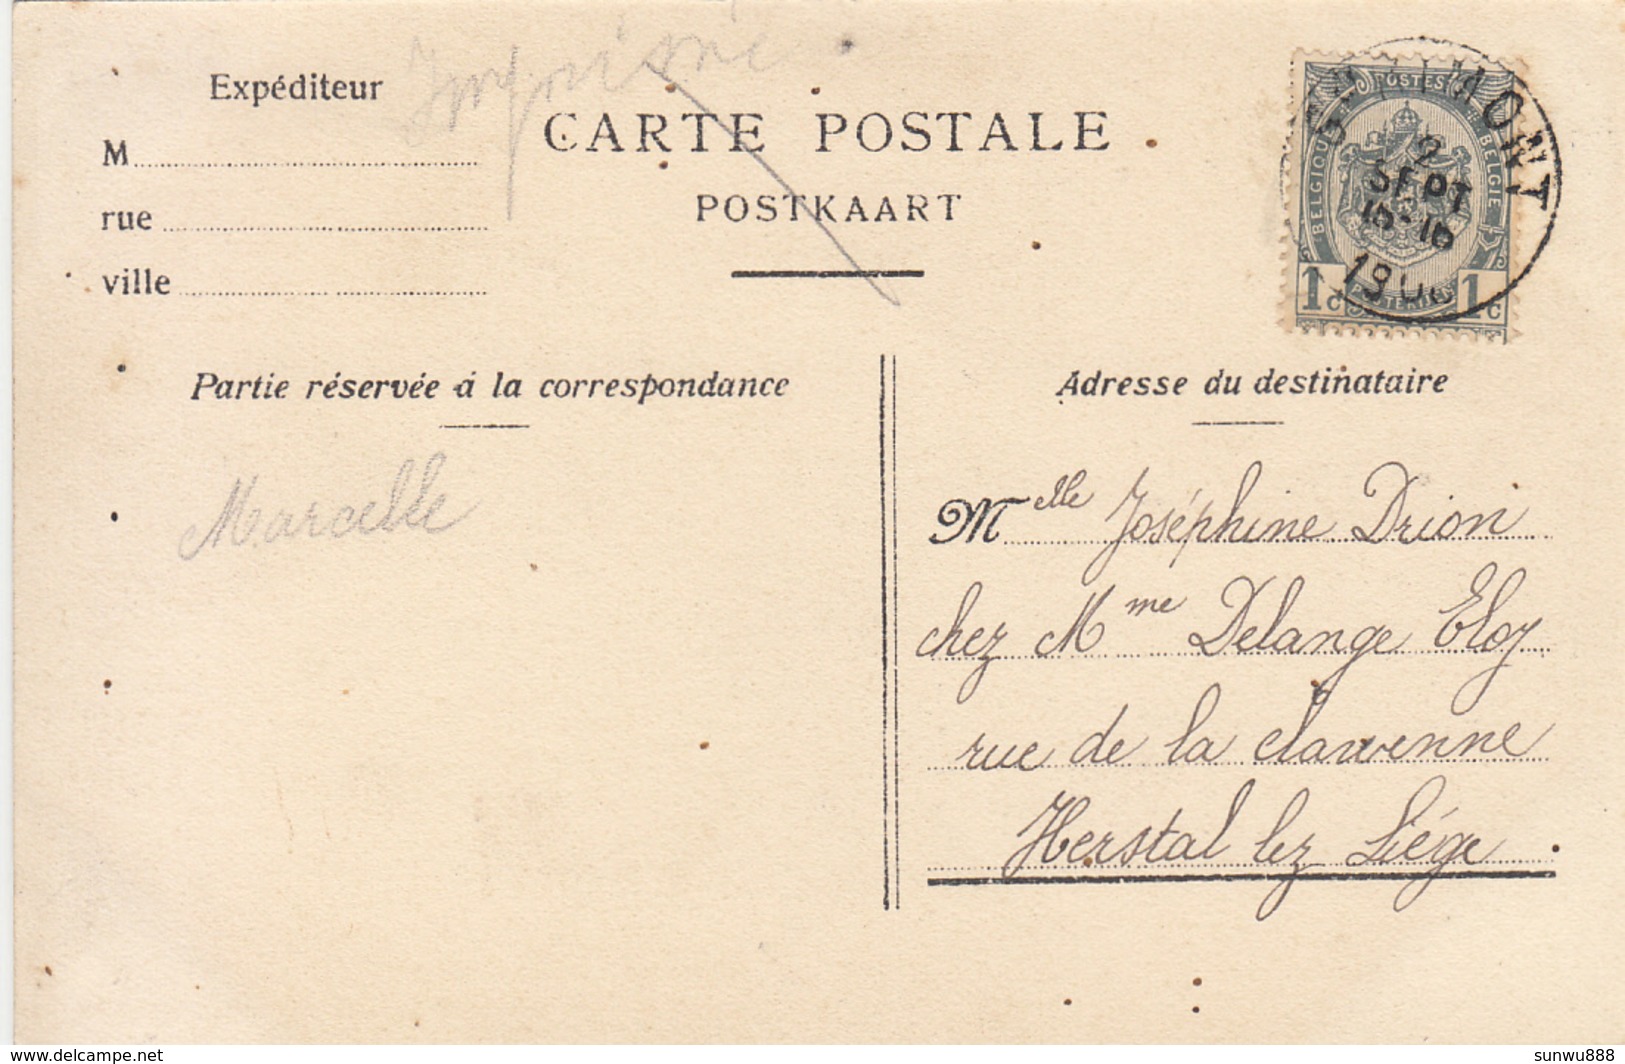 Imprimé
Expéditeur
M
rue
ville
CARTE POSTALE
POSTKAART
POSTES
BELGIQUE
BELGIE
1c
1c
2
SEPT
190
Partie réservée á la correspondance
Adresse du destinataire
Marcelle
Melle Joséphine Drion
chez Mme Delange Eloy
rue de la clawenne
Herstal lez Liége
www.delcampe.net
sunwu888